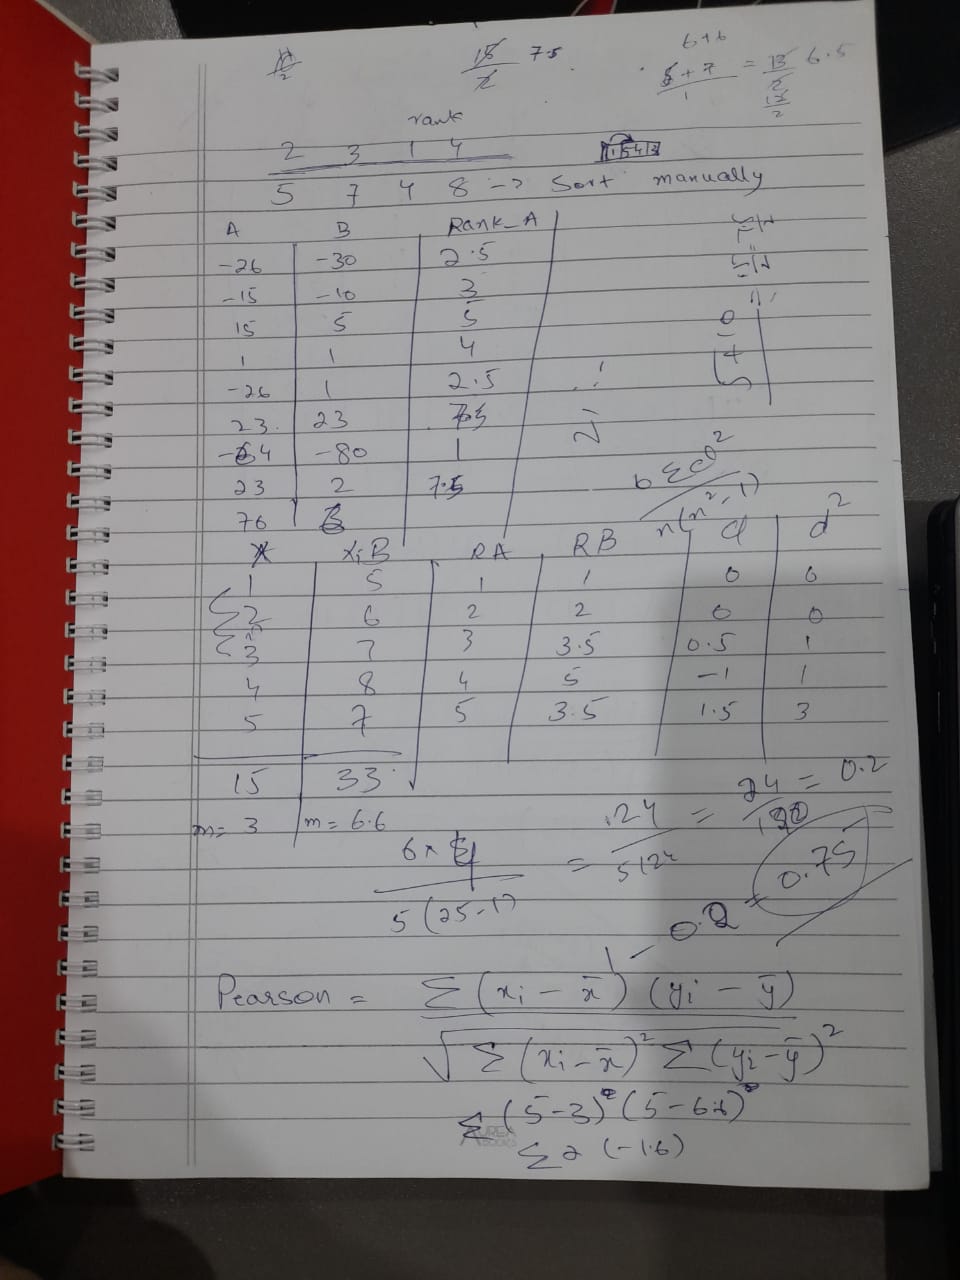 15/2 7.5
6+6
5+7 = 13/2 6.5
12/2
rank
2 3 1 4
5 7 4 8 -> Sort manually
A B Rank_A
-26 -30 2.5
-15 -10 3
15 5 5
1 1 4
-26 1 2.5
23 23
-64 -80 1
23 2 7.5
76
6Σd²
n(n²-1)
X X;B RA RB d d²
1 5 1 1 0 0
2 6 2 2 0 0
3 7 3 3.5 0.5 1
4 8 4 5 -1 1
5 7 5 3.5 1.5 3
15 33
m= 3 m= 6.6
6×4 / 5(25-1) = 24 / 5(24 = 24 / 120 = 0.2
1 - 0.2 = 0.75
Pearson = Σ(xi - x̄)(yi - ȳ)
√Σ(xi - x̄)² Σ(yi - ȳ)²
Σ(5-3)(5-6.6)
Σ2(-1.6)